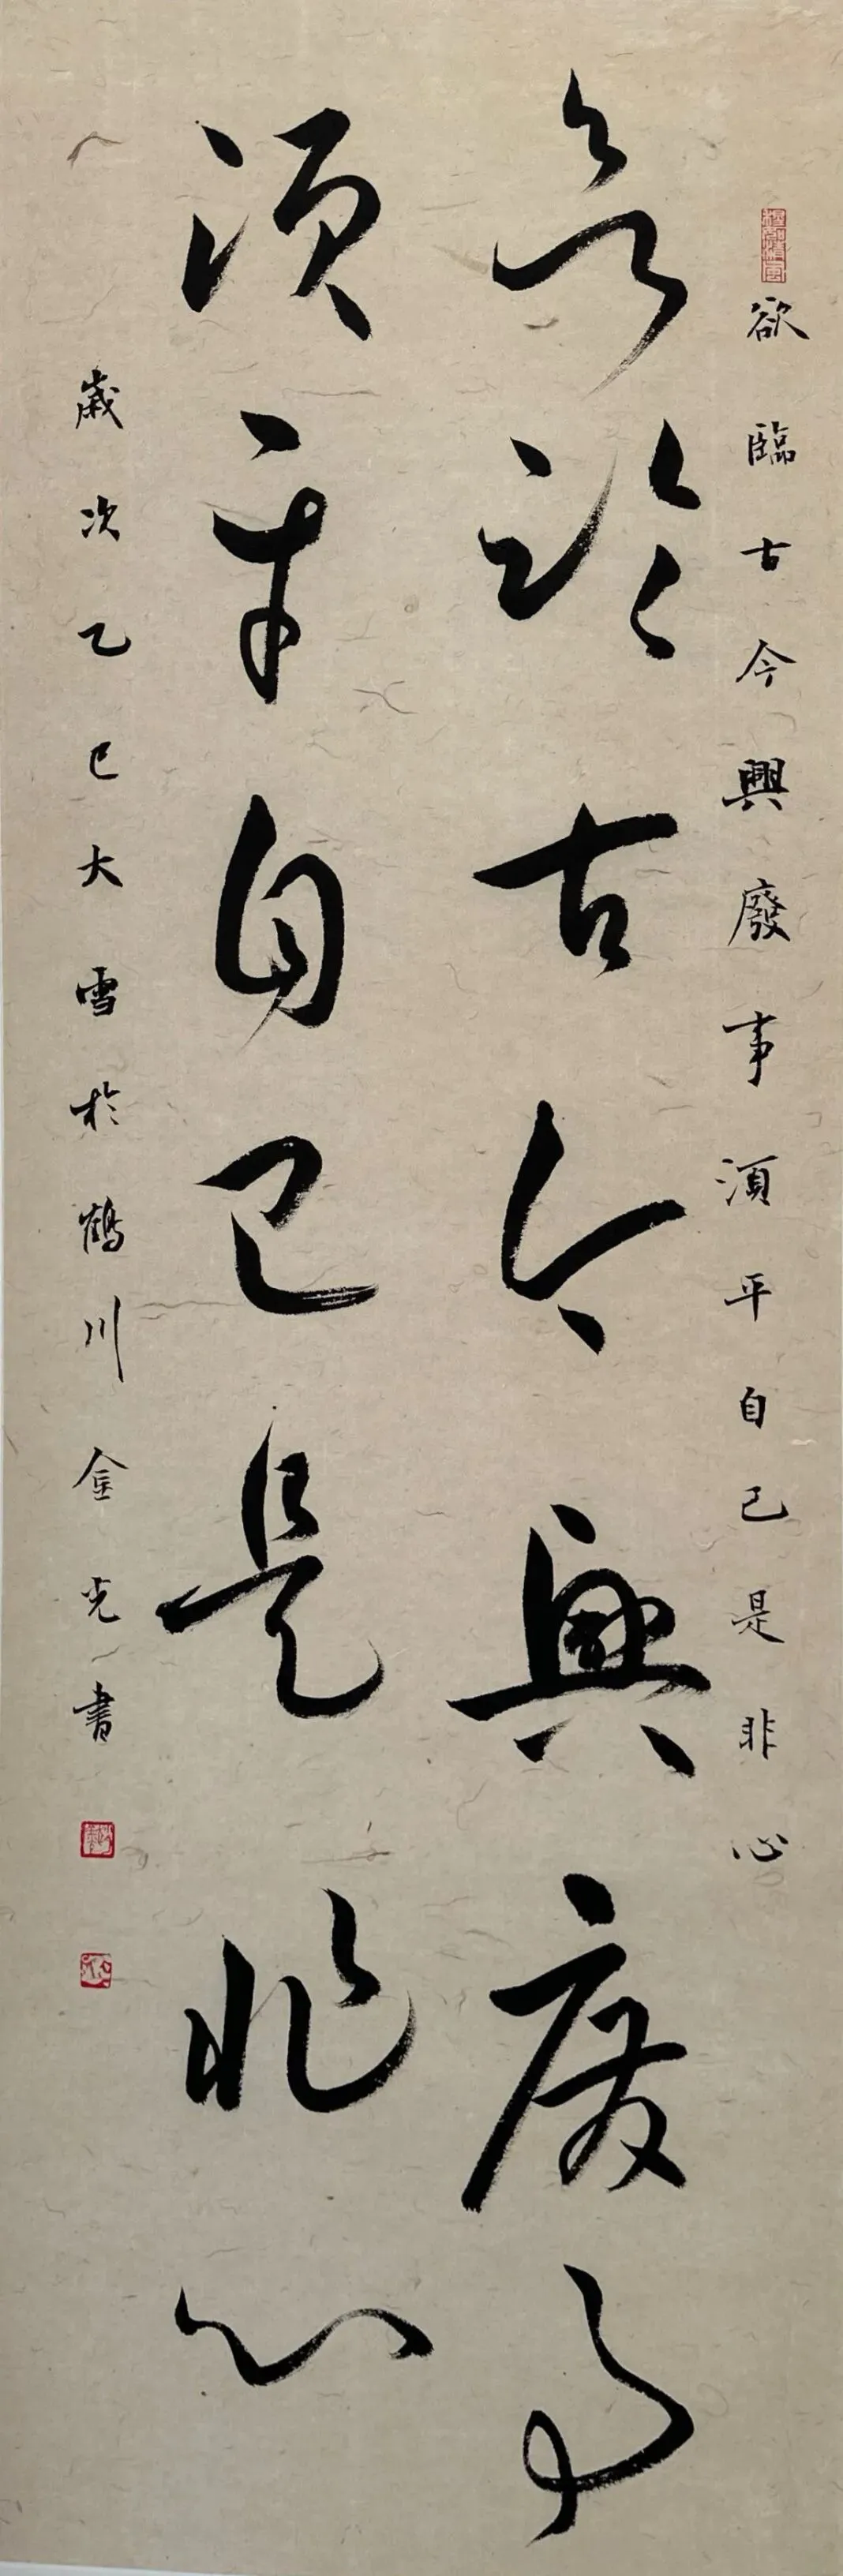 欲臨古今興廢事須平自己是非心
欲臨古今興廢事
須平自己是非心
歲次乙巳大雪於鶴川金光書